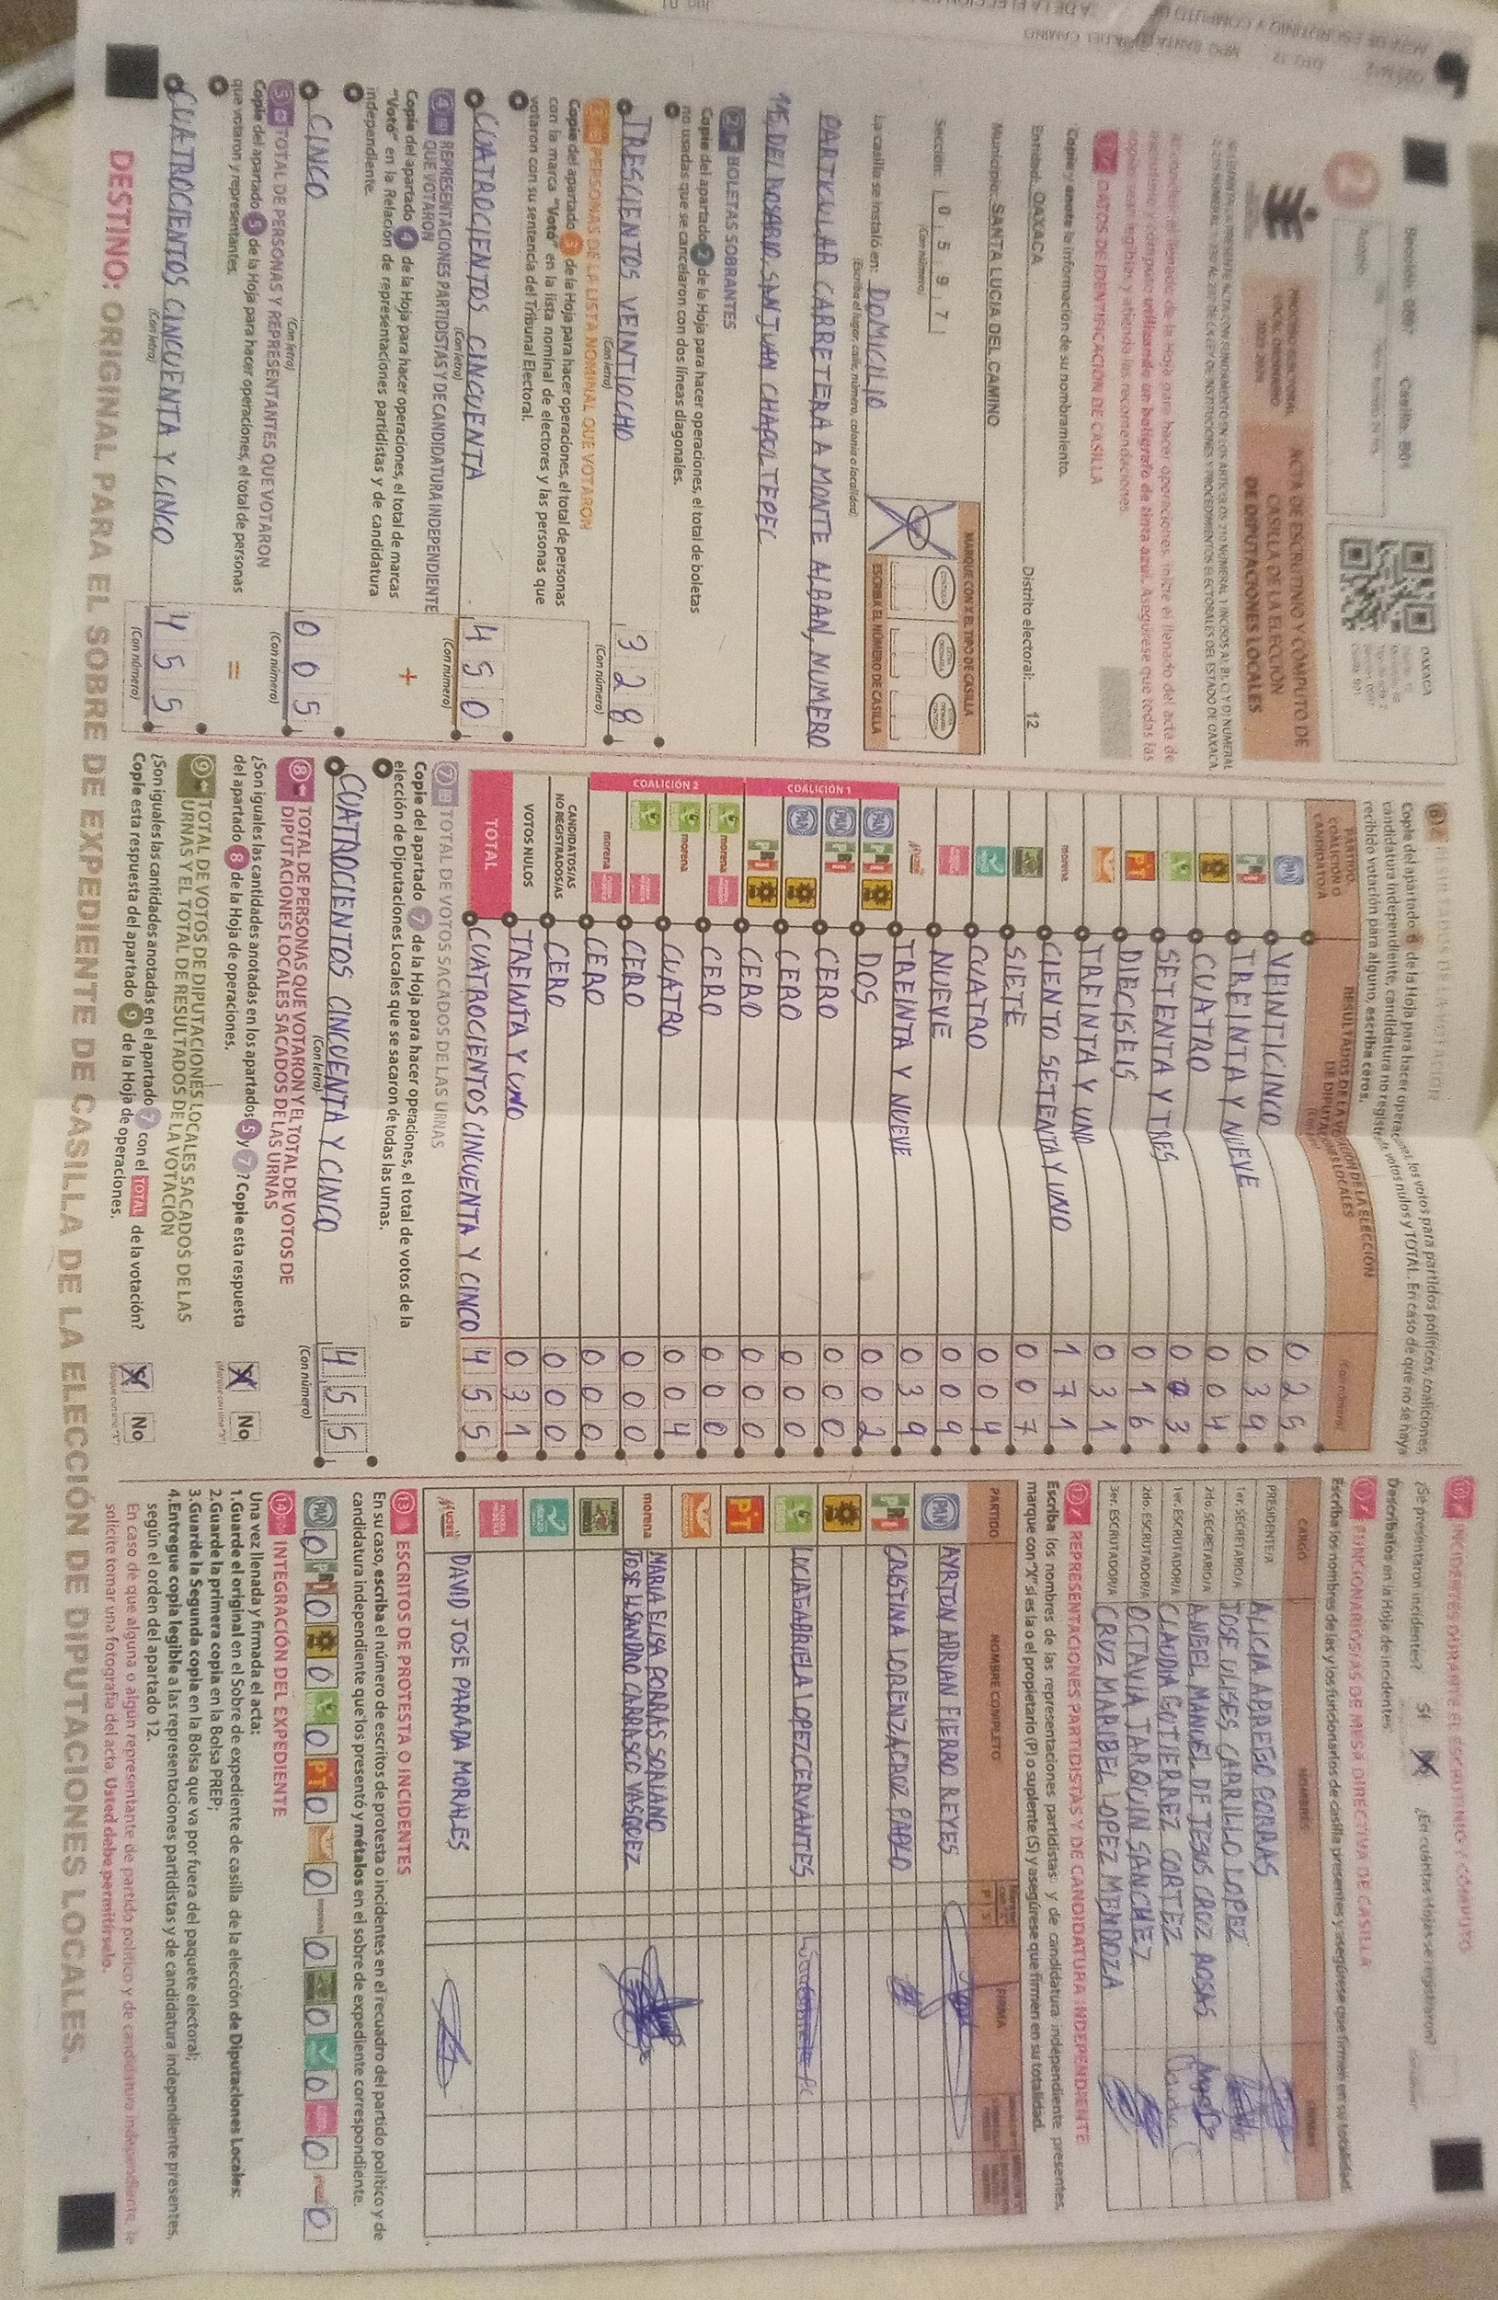 Sección: 0597 Casilla: B01
OAXACA
PROCESO ELECTORAL
LOCAL ORDINARIO
2023-2024
ACTA DE ESCRUTINIO Y CÓMPUTO DE
CASILLA DE LA ELECCIÓN
DE DIPUTACIONES LOCALES
DATOS DE IDENTIFICACIÓN DE CASILLA
Copie y anote la información de su nombramiento.
Entidad: OAXACA Distrito electoral: 12
Municipio: SANTA LUCIA DEL CAMINO
Sección: 0 5 9 7
(Con número)
MARQUE CON X EL TIPO DE CASILLA
ESCRIBA EL NÚMERO DE CASILLA
La casilla se instaló en: DOMICILIO
(Escriba el lugar, calle, número, colonia o localidad)
PARTICULAR CARRETERA A MONTE ALBAN, NUMERO
115 DEL ROSARIO, SAN JUAN CHAPULTEPEC
2 BOLETAS SOBRANTES
Copie del apartado 2 de la Hoja para hacer operaciones, el total de boletas
no usadas que se cancelaron con dos líneas diagonales.
TRESCIENTOS VEINTIOCHO 328
(Con letra) (Con número)
3 PERSONAS DE LA LISTA NOMINAL QUE VOTARON
Copie del apartado 3 de la Hoja para hacer operaciones, el total de personas
con la marca "Votó" en la lista nominal de electores y las personas que
votaron con su sentencia del Tribunal Electoral.
CUATROCIENTOS CINCUENTA 450
(Con letra) (Con número)
4 REPRESENTACIONES PARTIDISTAS Y DE CANDIDATURA INDEPENDIENTE
QUE VOTARON
Copie del apartado 4 de la Hoja para hacer operaciones, el total de marcas
"Votó" en la Relación de representaciones partidistas y de candidatura
independiente. +
CINCO 005
(Con letra) (Con número)
5 TOTAL DE PERSONAS Y REPRESENTANTES QUE VOTARON
Copie del apartado 5 de la Hoja para hacer operaciones, el total de personas
que votaron y representantes. =
CUATROCIENTOS CINCUENTA Y CINCO 455
(Con letra) (Con número)
6 RESULTADOS DE LA VOTACIÓN
Copie del apartado 6 de la Hoja para hacer operaciones, los votos para partidos políticos, coaliciones,
candidatura independiente, candidatura no registrada, votos nulos y TOTAL. En caso de que no se haya
recibido votación para alguno, escriba ceros.
PARTIDO,
COALICIÓN O
CANDIDATO/A
RESULTADOS DE LA VOTACIÓN DE LA ELECCIÓN
DE DIPUTACIONES LOCALES
(Con número)
PAN VEINTICINCO 025
PRI TREINTA Y NUEVE 039
CUATRO 004
SETENTA Y TRES 073
PT DIECISEIS 016
TREINTA Y UNO 031
morena CIENTO SETENTA Y UNO 171
SIETE 007
CUATRO 004
NUEVE 009
TREINTA Y NUEVE 039
COALICIÓN 1
PAN PRI DOS 002
PAN PRI CERO 000
PAN CERO 000
PRI CERO 000
COALICIÓN 2
morena CERO 000
morena CUATRO 004
CERO 000
morena CERO 000
CANDIDATOS/AS
NO REGISTRADOS/AS CERO 000
VOTOS NULOS TREINTA Y UNO 031
TOTAL CUATROCIENTOS CINCUENTA Y CINCO 455
7 TOTAL DE VOTOS SACADOS DE LAS URNAS
Copie del apartado 7 de la Hoja para hacer operaciones, el total de votos de la
elección de Diputaciones Locales que se sacaron de todas las urnas.
CUATROCIENTOS CINCUENTA Y CINCO 455
(Con letra) (Con número)
8 TOTAL DE PERSONAS QUE VOTARON Y EL TOTAL DE VOTOS DE
DIPUTACIONES LOCALES SACADOS DE LAS URNAS
¿Son iguales las cantidades anotadas en los apartados 5 y 7? Copie esta respuesta
del apartado 8 de la Hoja de operaciones. No
9 TOTAL DE VOTOS DE DIPUTACIONES LOCALES SACADOS DE LAS
URNAS Y EL TOTAL DE RESULTADOS DE LA VOTACIÓN
¿Son iguales las cantidades anotadas en el apartado 7 con el TOTAL de la votación?
Copie esta respuesta del apartado 9 de la Hoja de operaciones. No
10 INCIDENTES DURANTE EL ESCRUTINIO Y CÓMPUTO
¿Se presentaron incidentes? Sí ¿En cuántas Hojas se registraron?
Descríbalos en la Hoja de incidentes
FUNCIONARIOS/AS DE MESA DIRECTIVA DE CASILLA
Escriba los nombres de las y los funcionarios de casilla presentes y asegúrese que firmen en su totalidad.
CARGO NOMBRES
PRESIDENTE/A ALICIA ABREGO BORDAS
1er. SECRETARIO/A JOSE ULISES CARRILLO LOPEZ
2do. SECRETARIO/A ANGEL MANUEL DE JESUS CRUZ ROSAS
1er. ESCRUTADOR/A CLAUDIA GUTIERREZ CORTEZ
2do. ESCRUTADOR/A OCTAVIA TARQUIN SANCHEZ
3er. ESCRUTADOR/A CRUZ MARIBEL LOPEZ MENDOZA
12 REPRESENTACIONES PARTIDISTAS Y DE CANDIDATURA INDEPENDIENTE
Escriba los nombres de las representaciones partidistas y de candidatura independiente presentes,
marque con "X" si es la o el propietario (P) o suplente (S) y asegúrese que firmen en su totalidad.
PARTIDO NOMBRE COMPLETO FIRMA
PAN AYRTON ADRIAN FIERRO REYES
PRI CRISTINA LORENZA CRUZ PABLO
LUCIA GABRIELA LOPEZ CERVANTES
PT
morena MARIA ELISA PORRAS SORIANO
JOSE LISANDRO CARRASCO VASQUEZ
DAVID JOSE PARADA MORALES
13 ESCRITOS DE PROTESTA O INCIDENTES
En su caso, escriba el número de escritos de protesta o incidentes en el recuadro del partido político y de
candidatura independiente que los presentó y métalos en el sobre de expediente correspondiente.
PAN 0 PRI 0 0 0 PT 0 0 morena 0 0 0 0 0
14 INTEGRACIÓN DEL EXPEDIENTE
Una vez llenada y firmada el acta:
1.Guarde el original en el Sobre de expediente de casilla de la elección de Diputaciones Locales;
2.Guarde la primera copia en la Bolsa PREP;
3.Guarde la Segunda copia en la Bolsa que va por fuera del paquete electoral;
4.Entregue copia legible a las representaciones partidistas y de candidatura independiente presentes,
según el orden del apartado 12.
En caso de que alguna o algún representante de partido político y de candidatura independiente, le
solicite tomar una fotografía del acta. Usted debe permitírselo.
DESTINO: ORIGINAL PARA EL SOBRE DE EXPEDIENTE DE CASILLA DE LA ELECCIÓN DE DIPUTACIONES LOCALES.